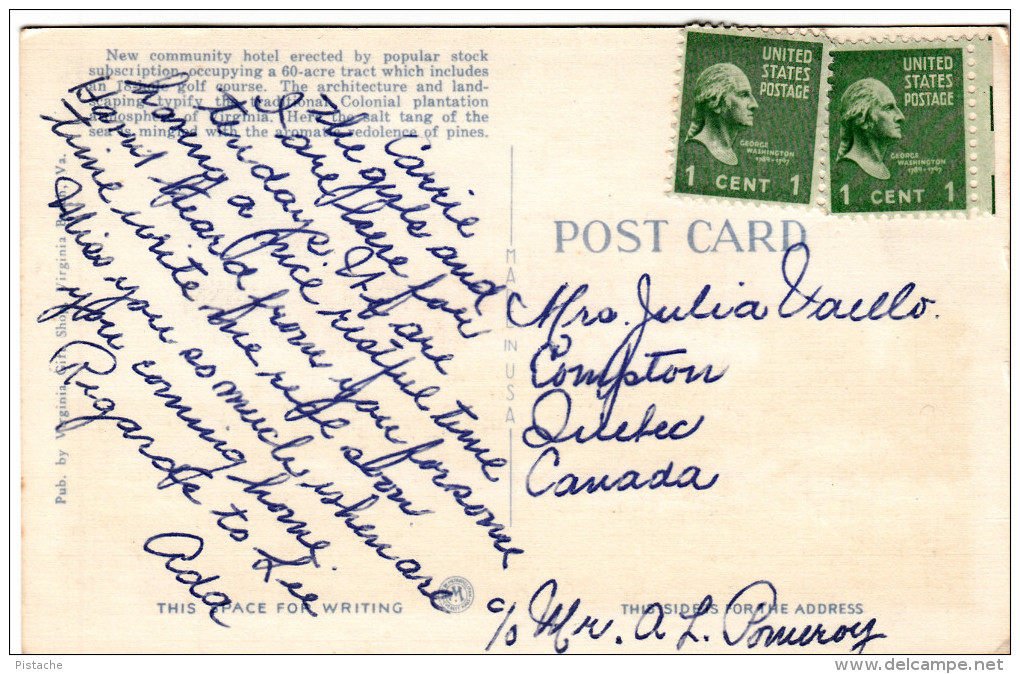 New community hotel erected by popular stock
subscription, occupying a 60-acre tract which includes
an 18-hole golf course. The architecture and land-
scaping typify the traditional Colonial plantation
atmosphere of Virginia. Here the salt tang of the
sea is mingled with the aromatic redolence of pines.
Pub. by Virginia Gift Shop, Virginia Beach, Va.
Carrie
The gyls and
I are here for
ten days. We are
having a nice restful time
Havnt heard from you for some
time write me real soon
Miss you so much when are
you coming home
Regards to Lee
Ada
THIS SPACE FOR WRITING
MADE IN USA
UNITED
STATES
POSTAGE
GEORGE
WASHINGTON
1789-1797
1 CENT 1
UNITED
STATES
POSTAGE
GEORGE
WASHINGTON
1789-1797
1 CENT 1
POST CARD
Mrs. Julia
Compton
Quebec
Canada
THIS SIDE IS FOR THE ADDRESS
c/o Mr. A L. Pomeroy
Pistache
www.delcampe.net